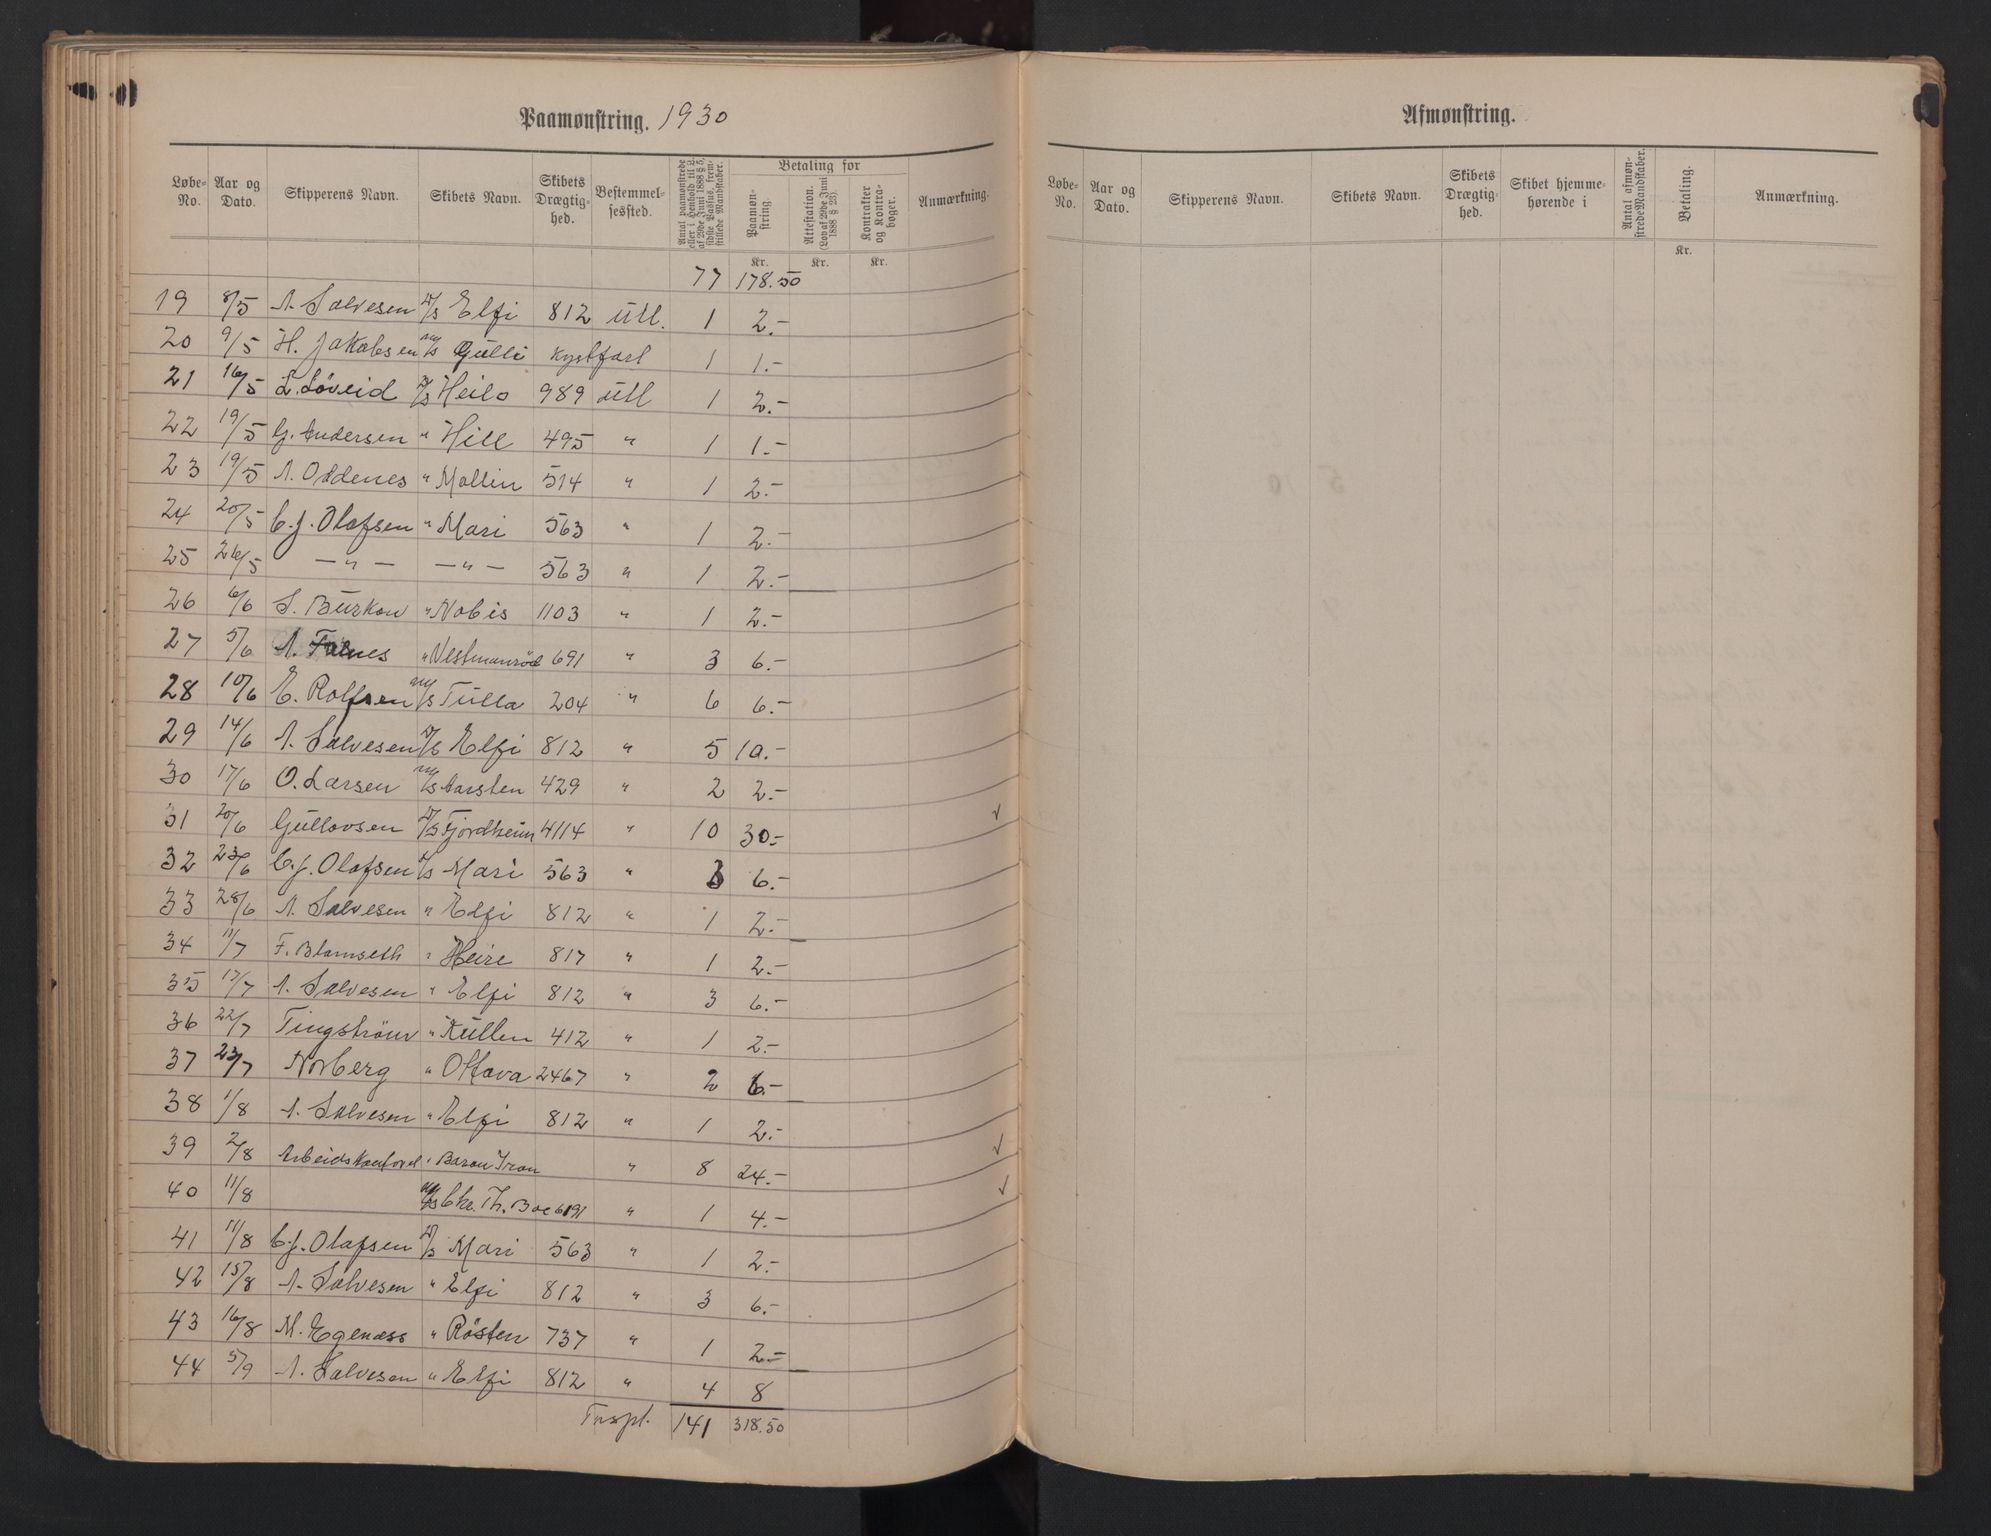 Paamønstring. 1930
Løbe-No. Aar og Dato. Skipperens Navn. Skibets Navn. Skibets Drægtighed. Bestemmelsessted. Antal paamønstrede eller i Henhold til L. af 29de Juni 1888 § 5, sidste Passus, fremstillede Mandskaber. Betaling for Paamønstring. Attestation. (Lov af 29de Juni 1888 § 23). Kontrakter og Kontrabøger. Anmærkning.
Kr. Kr. Kr.
77 178.50
19 8/5 A. Salvesen D/S Elfi 812 Utl. 1 2.-
20 9/5 H. Jakobsen M/S Gulli Kystfart 1 1.-
21 16/5 L. Löveid D/S Heilo 989 Utl 1 2.-
22 19/5 G. Andersen " Hill 495 " 1 1.-
23 19/5 A. Oddenes " Mallin 514 " 1 2.-
24 20/5 C. J. Olafsen " Mari 563 " 1 2.-
25 26/5 — " — — " — 563 " 1 2.-
26 6/6 S. Burkow " Nobis 1103 " 1 2.-
27 5/6 A. Falnes " Vestmanröd 691 " 3 6.-
28 10/6 E. Rolfsen M/S Tulla 204 " 6 6.-
29 14/6 A. Salvesen D/S Elfi 812 " 5 10.-
30 17/6 O. Larsen M/S Karsten 429 " 2 2.-
31 20/6 Gullovsen D/S Fjordheim 4114 " 10 30.- ✓
32 23/6 C. J. Olafsen D/S Mari 563 " 3 6.-
33 28/6 A. Salvesen " Elfi 812 " 1 2.-
34 11/7 F. Blamseth " Heire 817 " 1 2.-
35 17/7 A. Salvesen " Elfi 812 " 3 6.-
36 22/7 Tingström " Kullen 412 " 1 2.-
37 23/7 Norberg " Ottava 2467 " 2 6.-
38 1/8 A. Salvesen " Elfi 812 " 1 2.-
39 2/8 Arbeidskontoret " Baron Iron " 8 24.- ✓
40 11/8 M/S Chr. Th. Boe 6191 " 1 4.- ✓
41 11/8 C. J. Olafsen D/S Mari 563 " 1 2.-
42 15/8 A. Salvesen " Elfi 812 " 3 6.-
43 16/8 M. Egenæss " Rösten 737 " 1 2.-
44 5/9 A. Salvesen " Elfi 812 " 4 8
Trspt. 141 318.50
Afmønstring.
Løbe-No. Aar og Dato. Skipperens Navn. Skibets Navn. Skibets Drægtighed. Skibet hjemmehørende i Antal afmønstrede Mandskaber. Betaling. Anmærkning.
Kr.